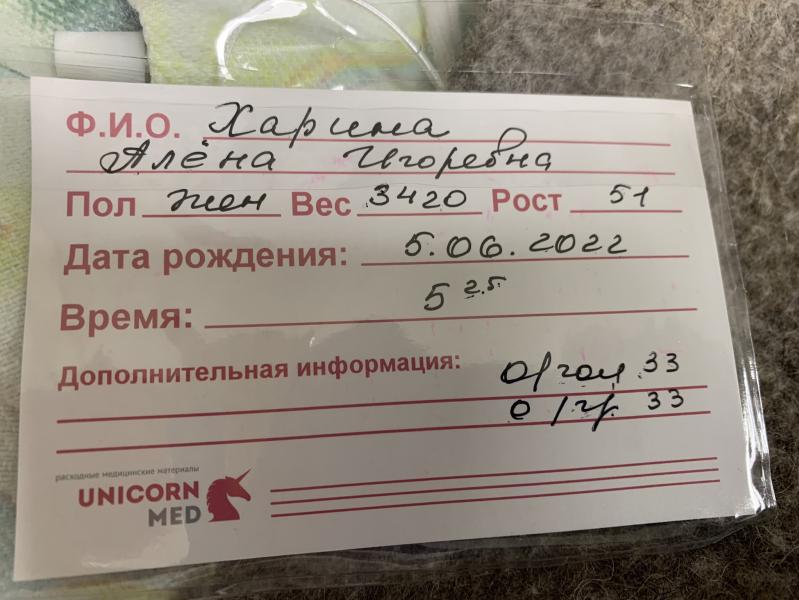 Ф.И.О. Харина
Алёна Игоревна
Пол жен Вес 3420 Рост 51
Дата рождения: 5.06.2022
Время: 5 25
Дополнительная информация: о/гол 33
о/гр 33
расходные медицинские материалы
UNICORN
MED